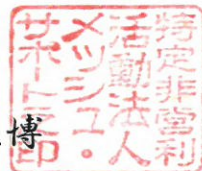 特定非営利
活動法人
メッシュ・
サポート之印
博